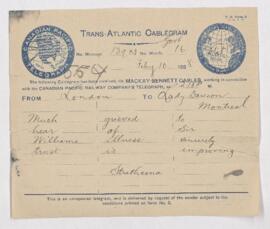 TRANS-ATLANTIC CABLEGRAM
CANADIAN PACIFIC
TELEGRAPH
No. Message No. Words 16
Feby 10 1898
The following Cablegram has been received via MACKAY-BENNETT CABLES
CANADIAN PACIFIC RAILWAY COMPANY'S TELEGRAPH, at
FROM London To Lady Dawson
Montreal
Much grieved to
hear of Sir
Williams illness sincerely
trust is improving
Strathcona
This is an unrepeated telegram, and is delivered by request of the sender subject to the
conditions printed on form No. 2.